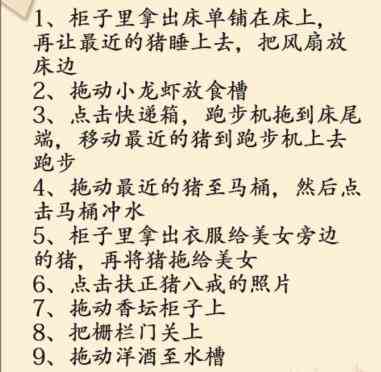 1、柜子里拿出床单铺在床上，
再让最近的猪睡上去，把风扇放
床边
2、拖动小龙虾放食槽
3、点击快递箱，跑步机拖到床尾
端，移动最近的猪到跑步机上去
跑步
4、拖动最近的猪至马桶，然后点
击马桶冲水
5、柜子里拿出衣服给美女旁边
的猪，再将猪拖给美女
6、点击扶正猪八戒的照片
7、拖动香坛柜子上
8、把栅栏门关上
9、拖动洋酒至水槽